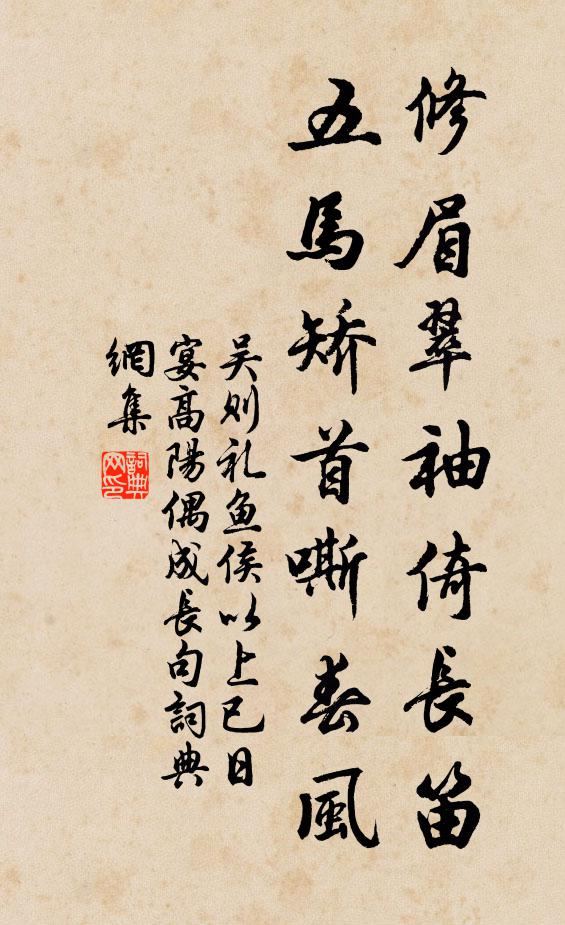 修眉翠袖倚長笛
五馬矯首嘶春風
吴则礼鱼侯以上巳日
宴高陽偶成長句詞典
網集
詞典網印